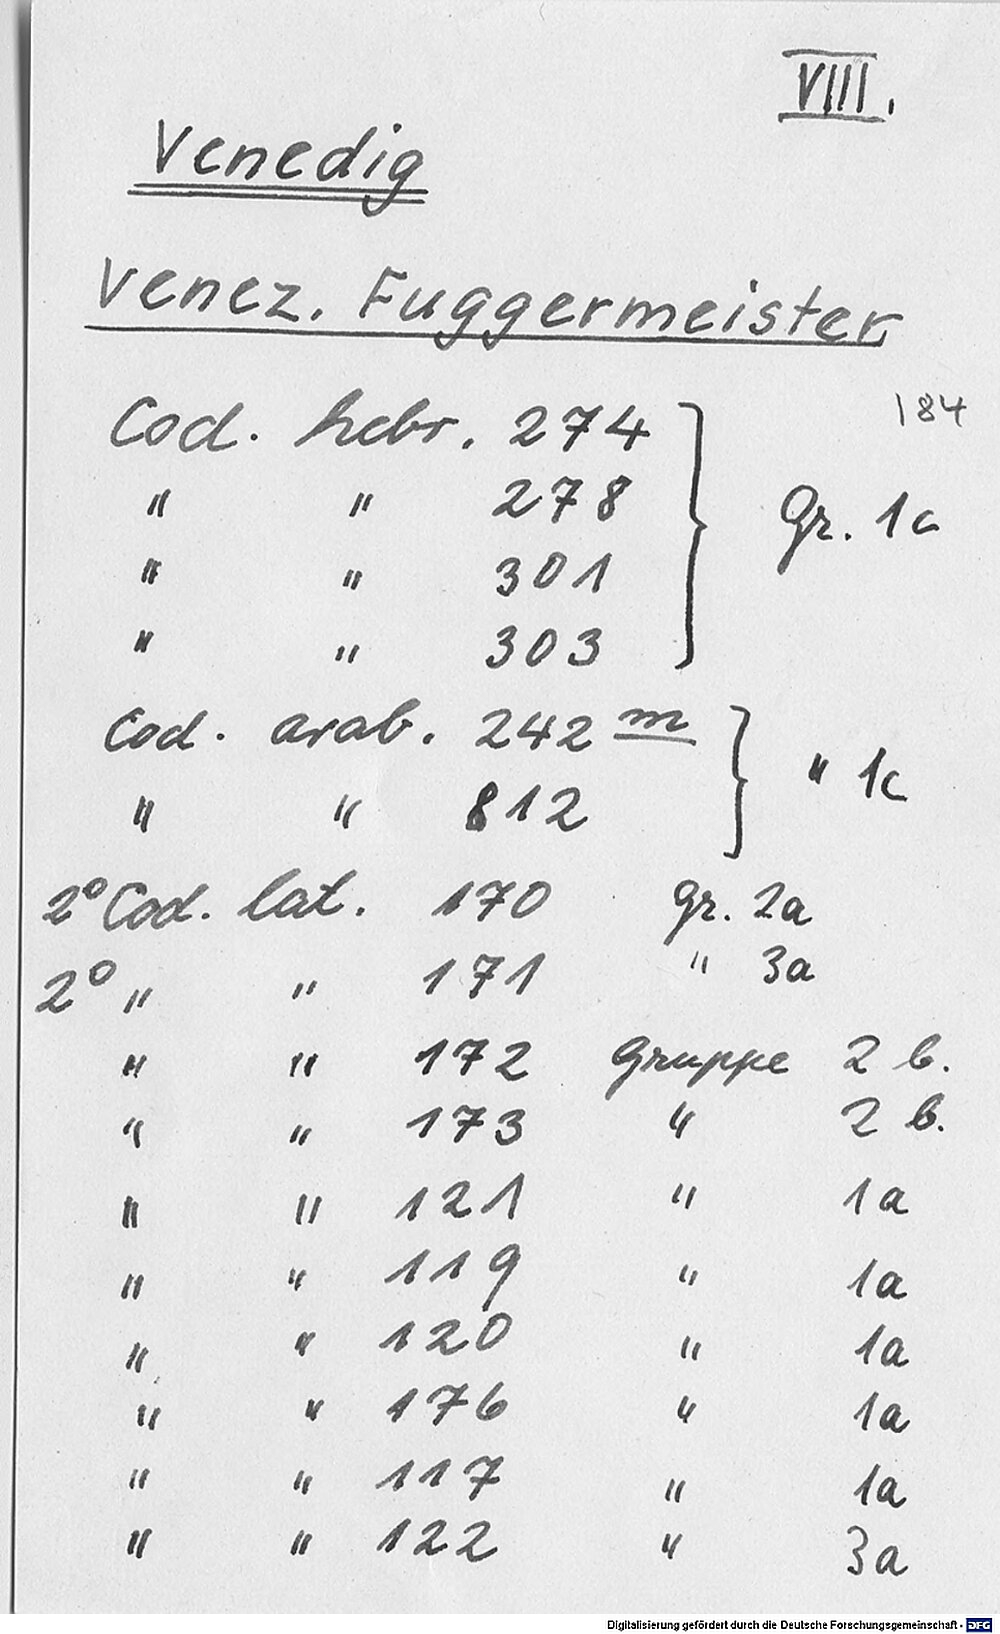 VIII.
Venedig
Venez. Fuggermeister
184
Cod. hebr. 274
" " 278 Gr. 1c
" " 301
" " 303
Cod. arab. 242 m
" 1c
" " 812
2° Cod. lat. 170 Gr. 2a
2° " " 171 " 3a
" " 172 Gruppe 2 b.
" " 173 " 2 b.
" " 121 " 1a
" " 119 " 1a
" " 120 " 1a
" " 176 " 1a
" " 117 " 1a
" " 122 " 3a
Digitalisierung gefördert durch die Deutsche Forschungsgemeinschaft - DFG